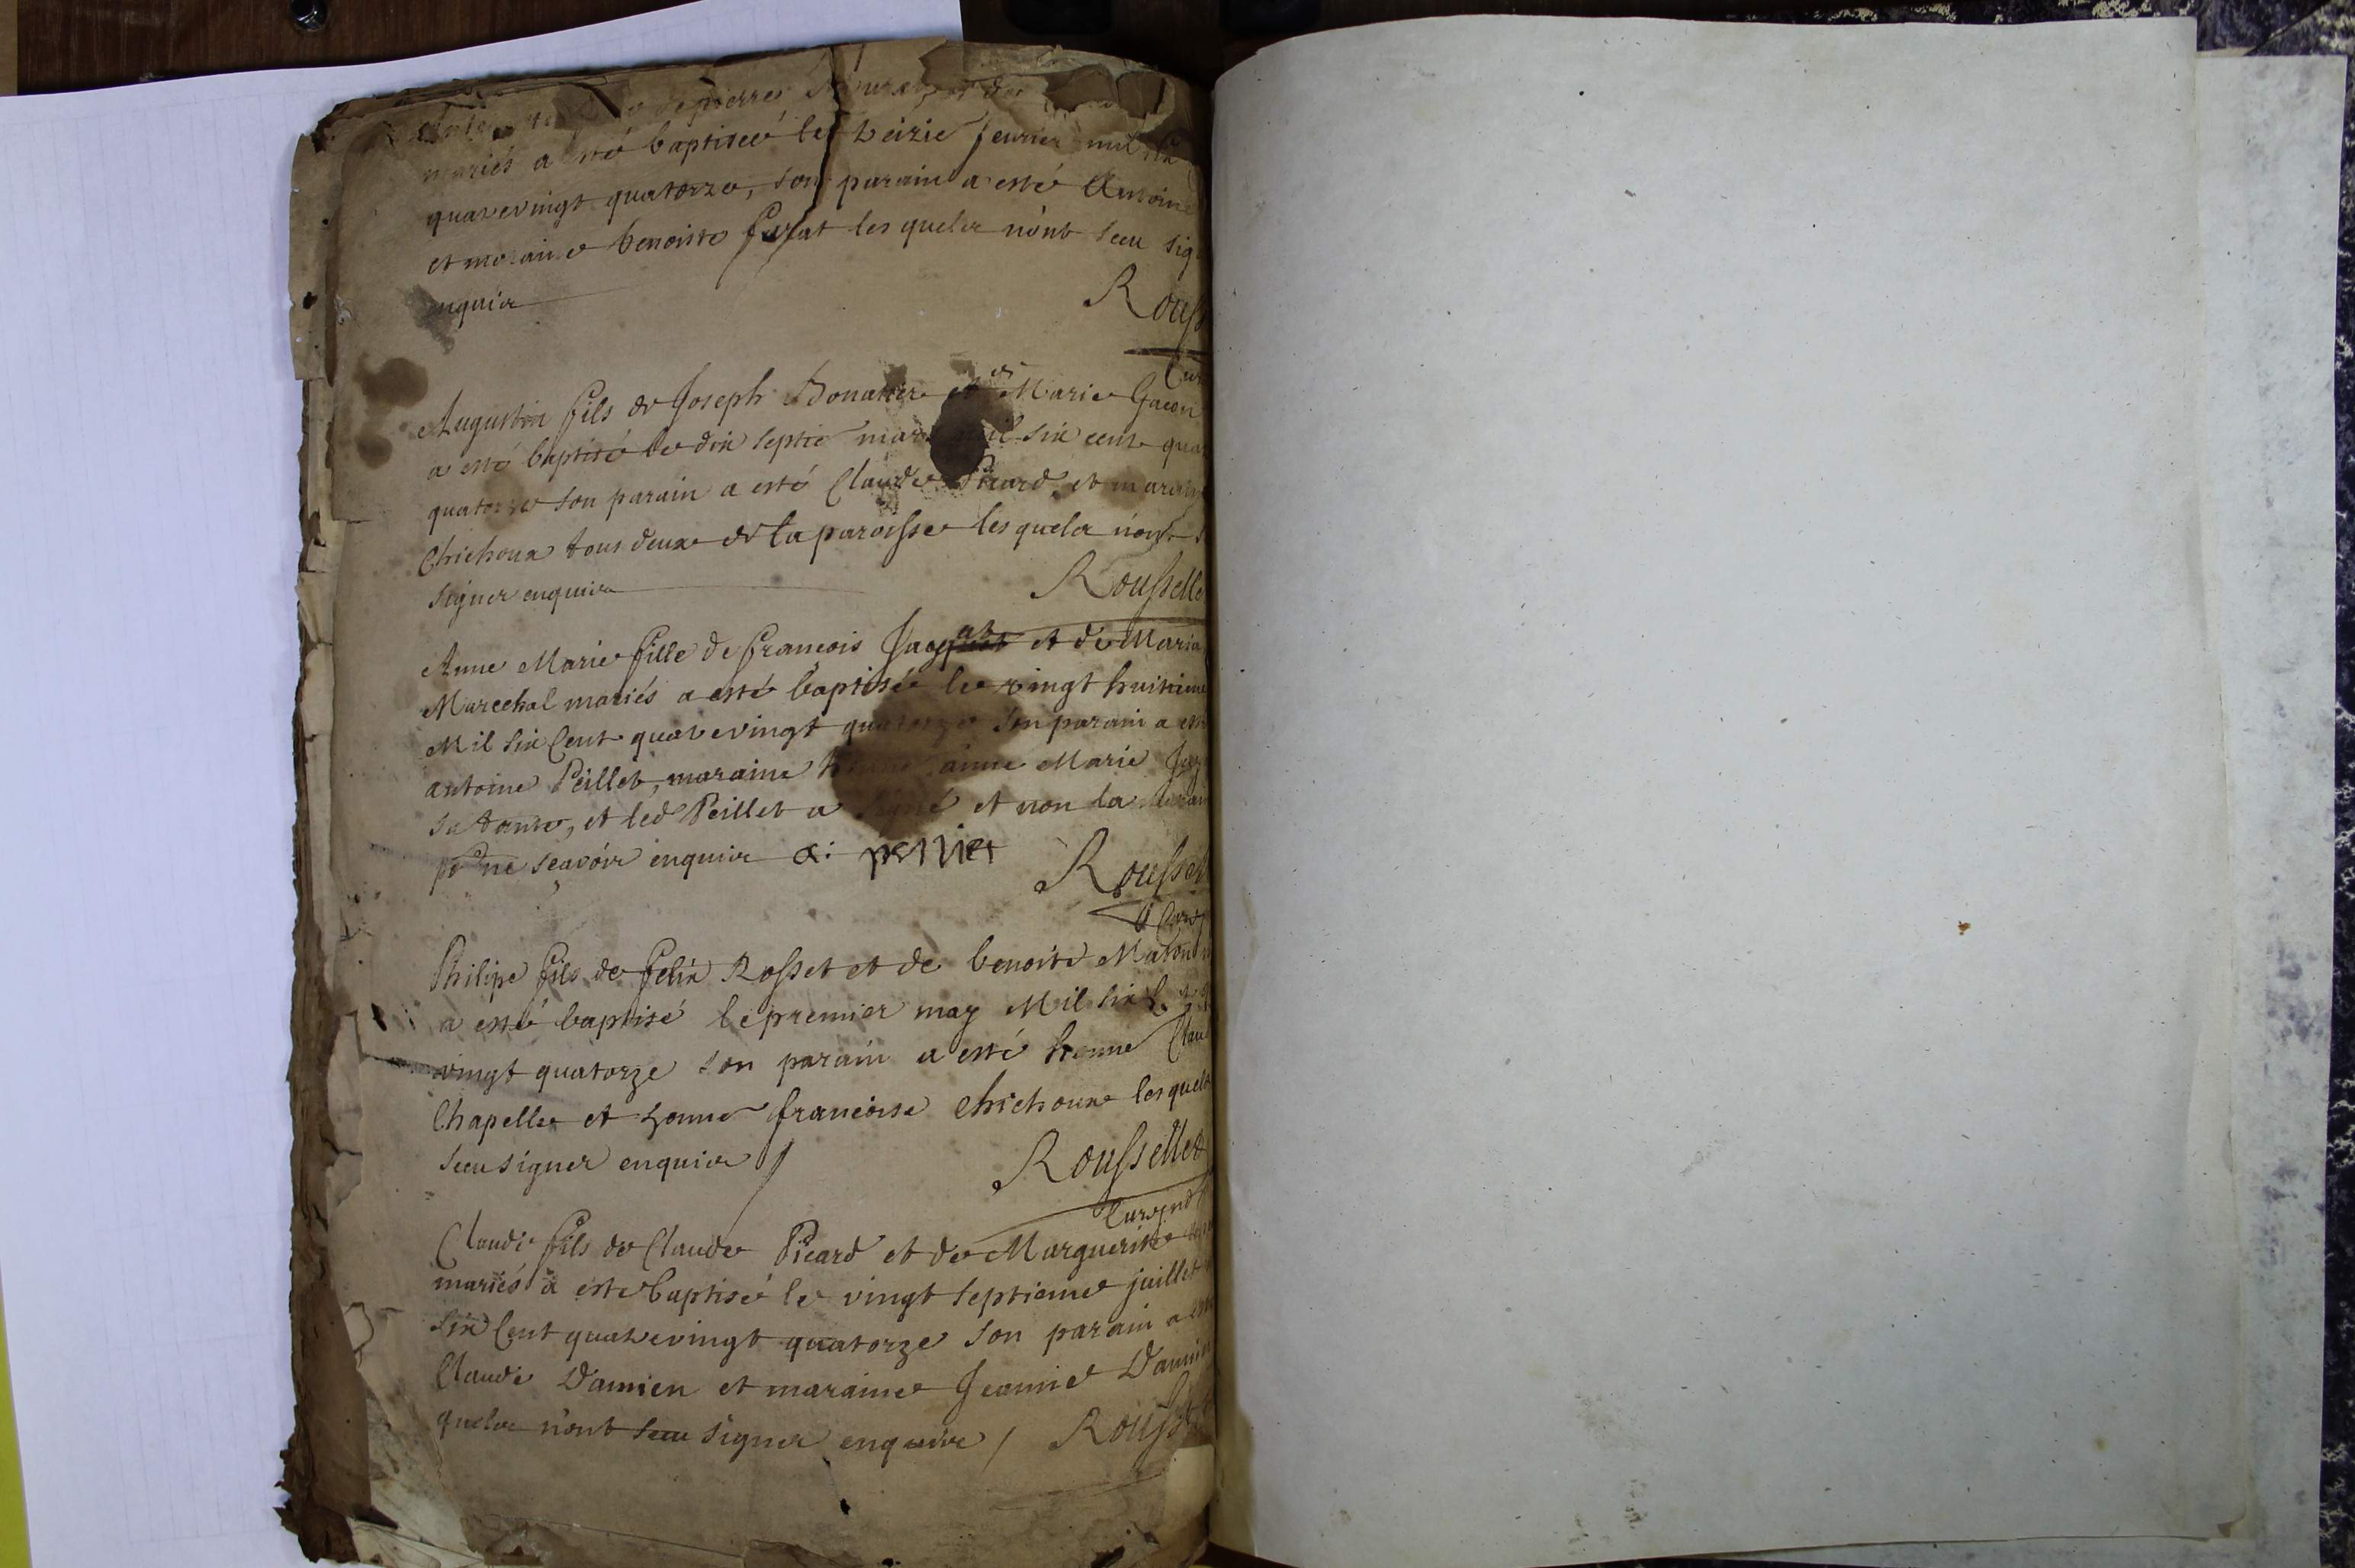 de pierre
mariés a esté baptiseé le treizie feurier mil six
quatrevingt quatorze, son parain a esté Antoine
et maraine benoiste les quels n'ont sceu sig
enquis
Rouss
Cur
Augustin fils de Joseph Donatier et de Marie Gacon
a esté baptisé le dix septie mars mil six cent qua
quatorze son parain a esté Claude Picard et marain
Chichoux tous deux de la paroisse les quels n'ont s
signer enquis
Rousselle
Anne Marie fille de françois Jacquat et de Maria
Marechal mariés a esté baptisée le vingt huitieme
Mil six Cent quatrevingt quatorze son parain a est
antoine Peillet, maraine anne Marie Jac
sa tante, et led Peillet a signé et non la marain
po ne scavoir enquis a: pellier
Roussell
Cure
Philipe fils de felix Rosset et de benoite Maton
a esté baptisé le premier may Mil six C
vingt quatorze son parain a esté honne Clau
Chapelle et honne francoise Chichoux les quels
sceu signer enquis
Rousselled
Cure
Claude fils de Claude Picard et de Marguerite
mariés a este baptisé le vingt septieme juillet
six Cent quatrevingt quatorze son parain a este
Claude Damien et maraine Jeanne Damien
quels n'ont sceu signer enquis / Rousse